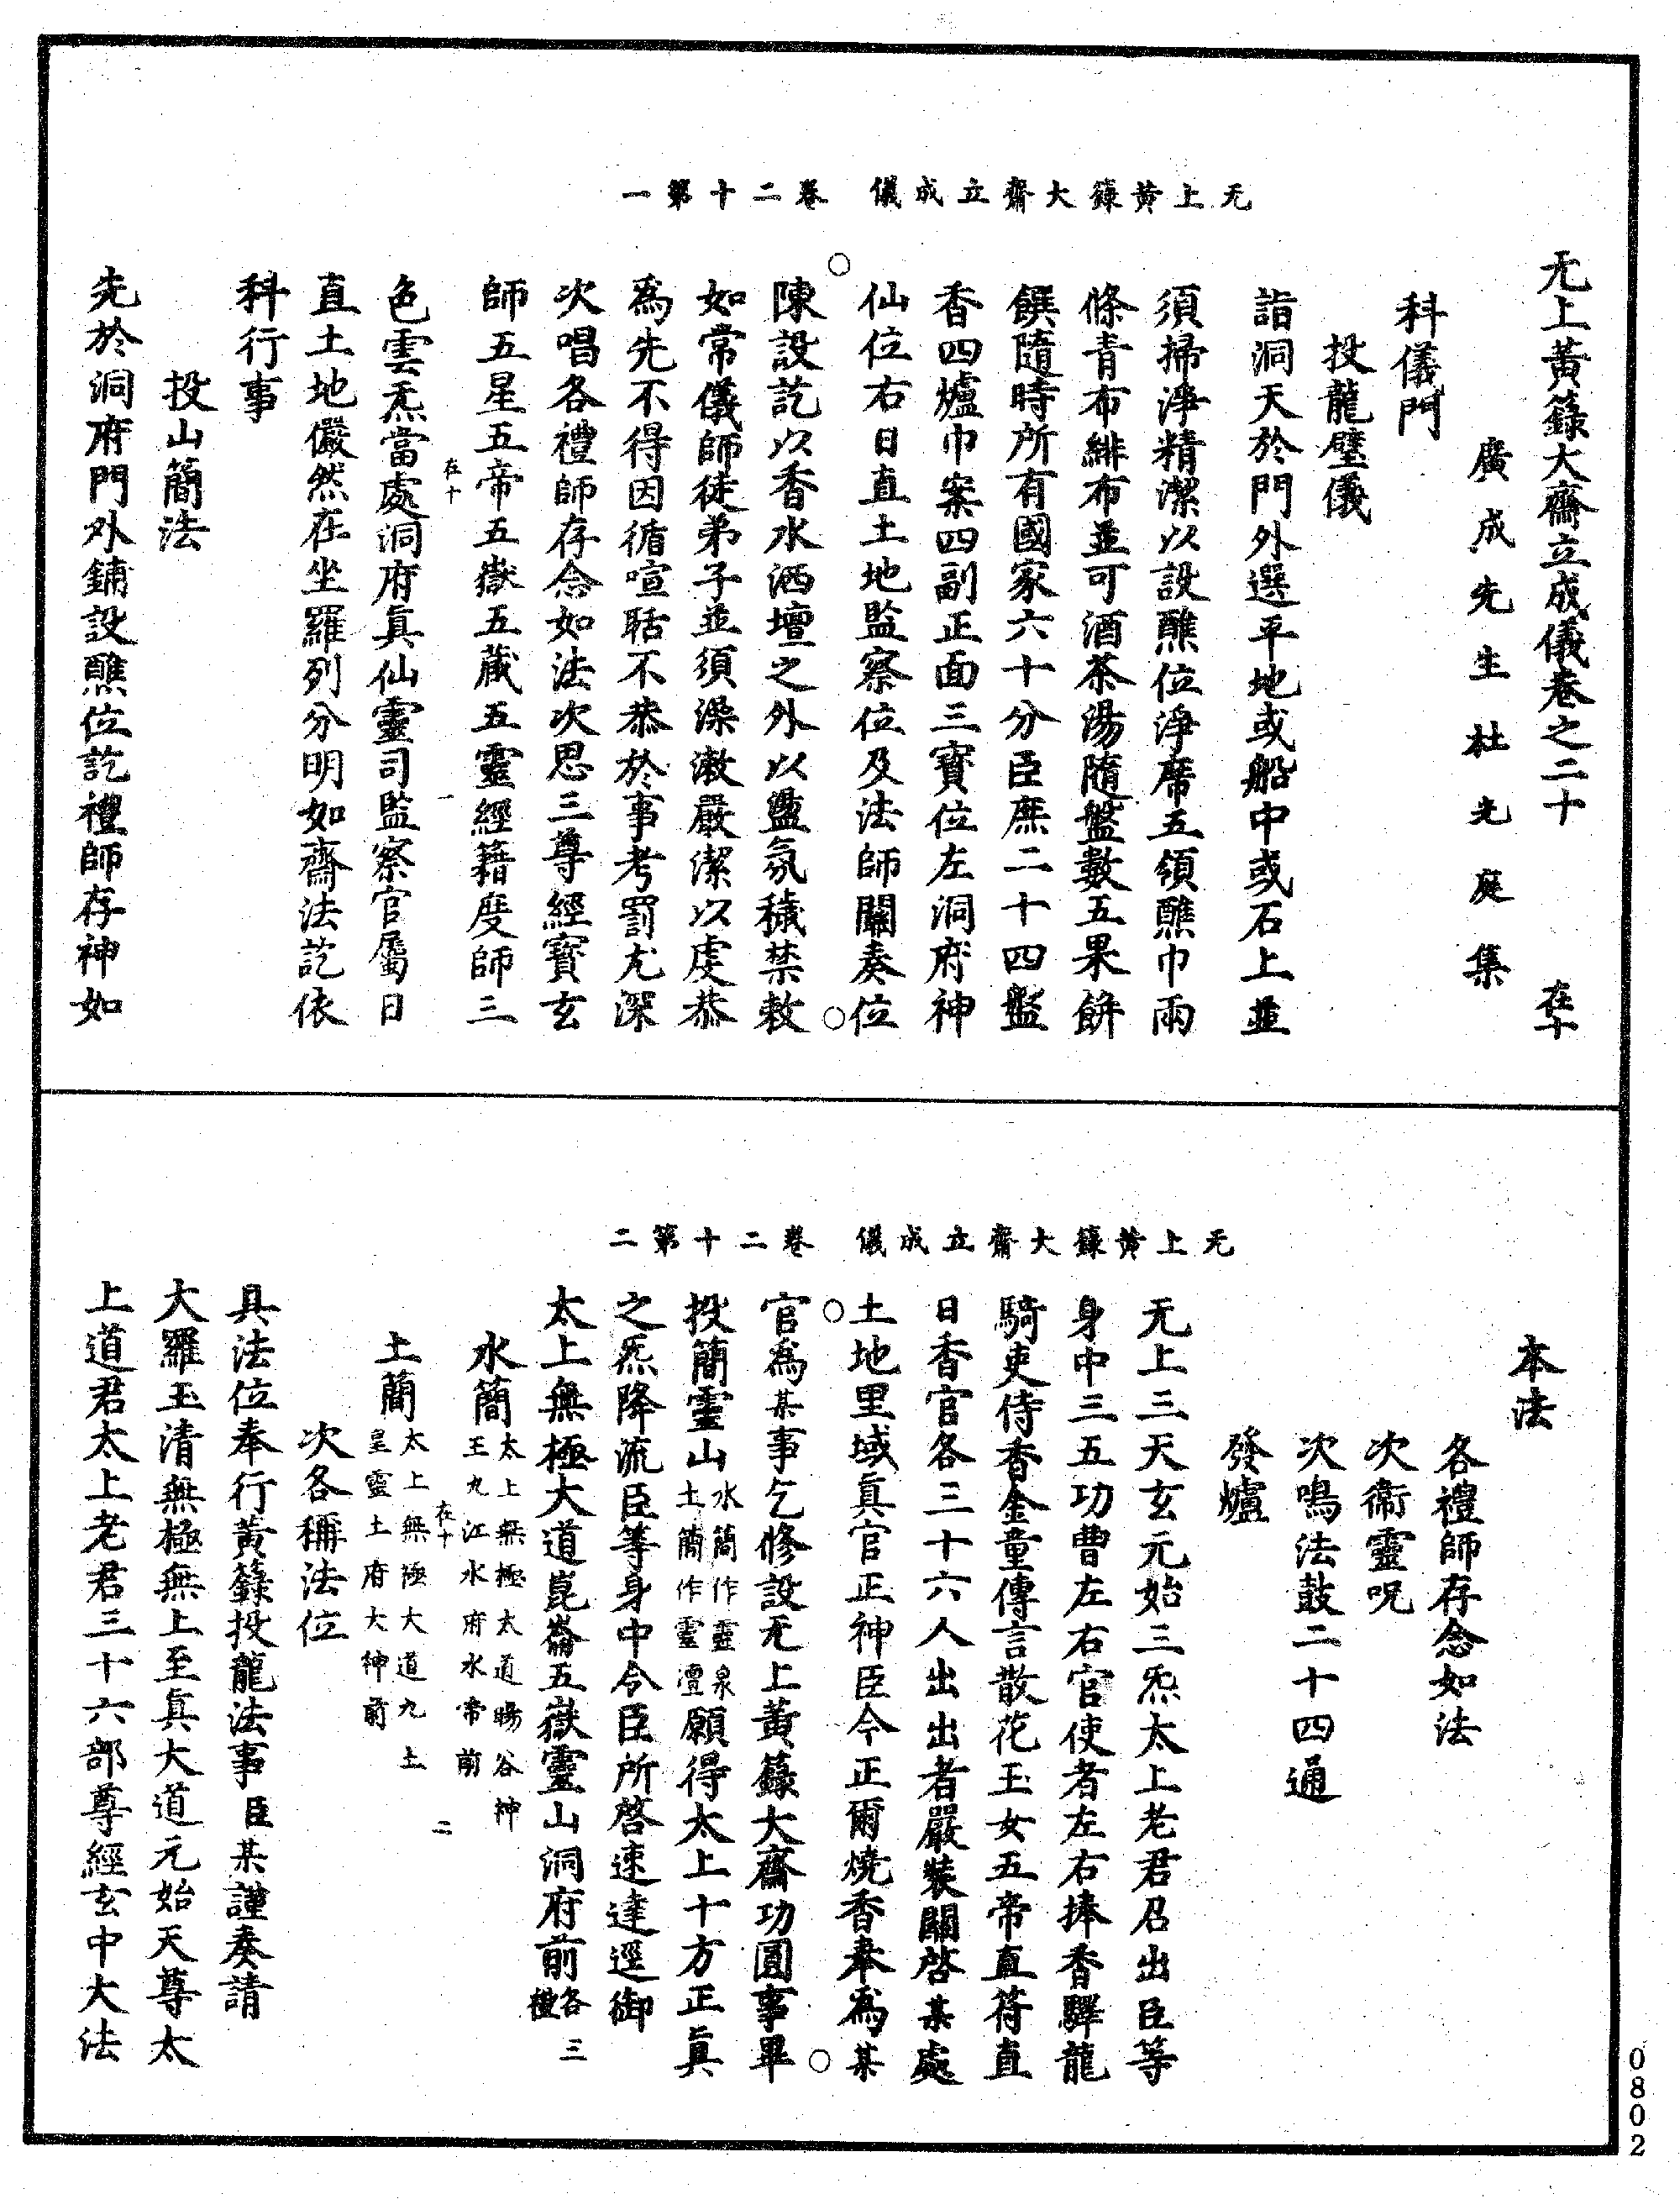 无上黃籙大齋立成儀 卷二十第一
无上黃籙大齋立成儀卷之二十 在十
廣成先生杜光庭集
科儀門
投龍璧儀
詣洞天於門外選平地或船中或石上並
須掃淨精潔以設醮位淨席五領醮巾兩
條青布緋布並可酒茶湯隨盤數五果餅
饌隨時所有國家六十分臣庶二十四盤
香四爐巾案四副正面三寶位左洞府神
仙位右日直土地監察位及法師關奏位
陳設訖以香水洒壇之外以盪氛穢禁敕
如常儀師徒弟子並須澡漱嚴潔以虔恭
為先不得因循喧聒不恭於事考罰尤深
次唱各禮師存念如法次思三尊經寶玄
師五星五帝五嶽五藏五靈經籍度師三
在十 一
色雲炁當處洞府真仙靈司監察官屬日
直土地儼然在坐羅列分明如齋法訖依
科行事
投山簡法
先於洞府門外鋪設醮位訖禮師存神如
无上黃籙大齋立成儀 卷二十第二
本法
各禮師存念如法
次衛靈呪
次鳴法鼓二十四通
發爐
无上三天玄元始三炁太上老君召出臣等
身中三五功曹左右官使者左右捧香驛龍
騎吏侍香金童傳言散花玉女五帝直符直
日香官各三十六人出出者嚴裝關啓某處
土地里域真官正神臣今正爾燒香奉為某
官為某事乞修設无上黃籙大齋功圓事畢
投簡靈山水簡作靈泉土簡作靈壇願得太上十方正真
之炁降流臣等身中令臣所啓速達逕御
太上無極大道崑崙五嶽靈山洞府前各三禮
水簡太上無極太道暘谷神王九江水府水帝前
土簡太上無極大道九土皇靈土府大神前
在十 二
次各稱法位
具法位奉行黃籙投龍法事臣某謹奏請
大羅玉清無極無上至真大道元始天尊太
上道君太上老君三十六部尊經玄中大法
0802